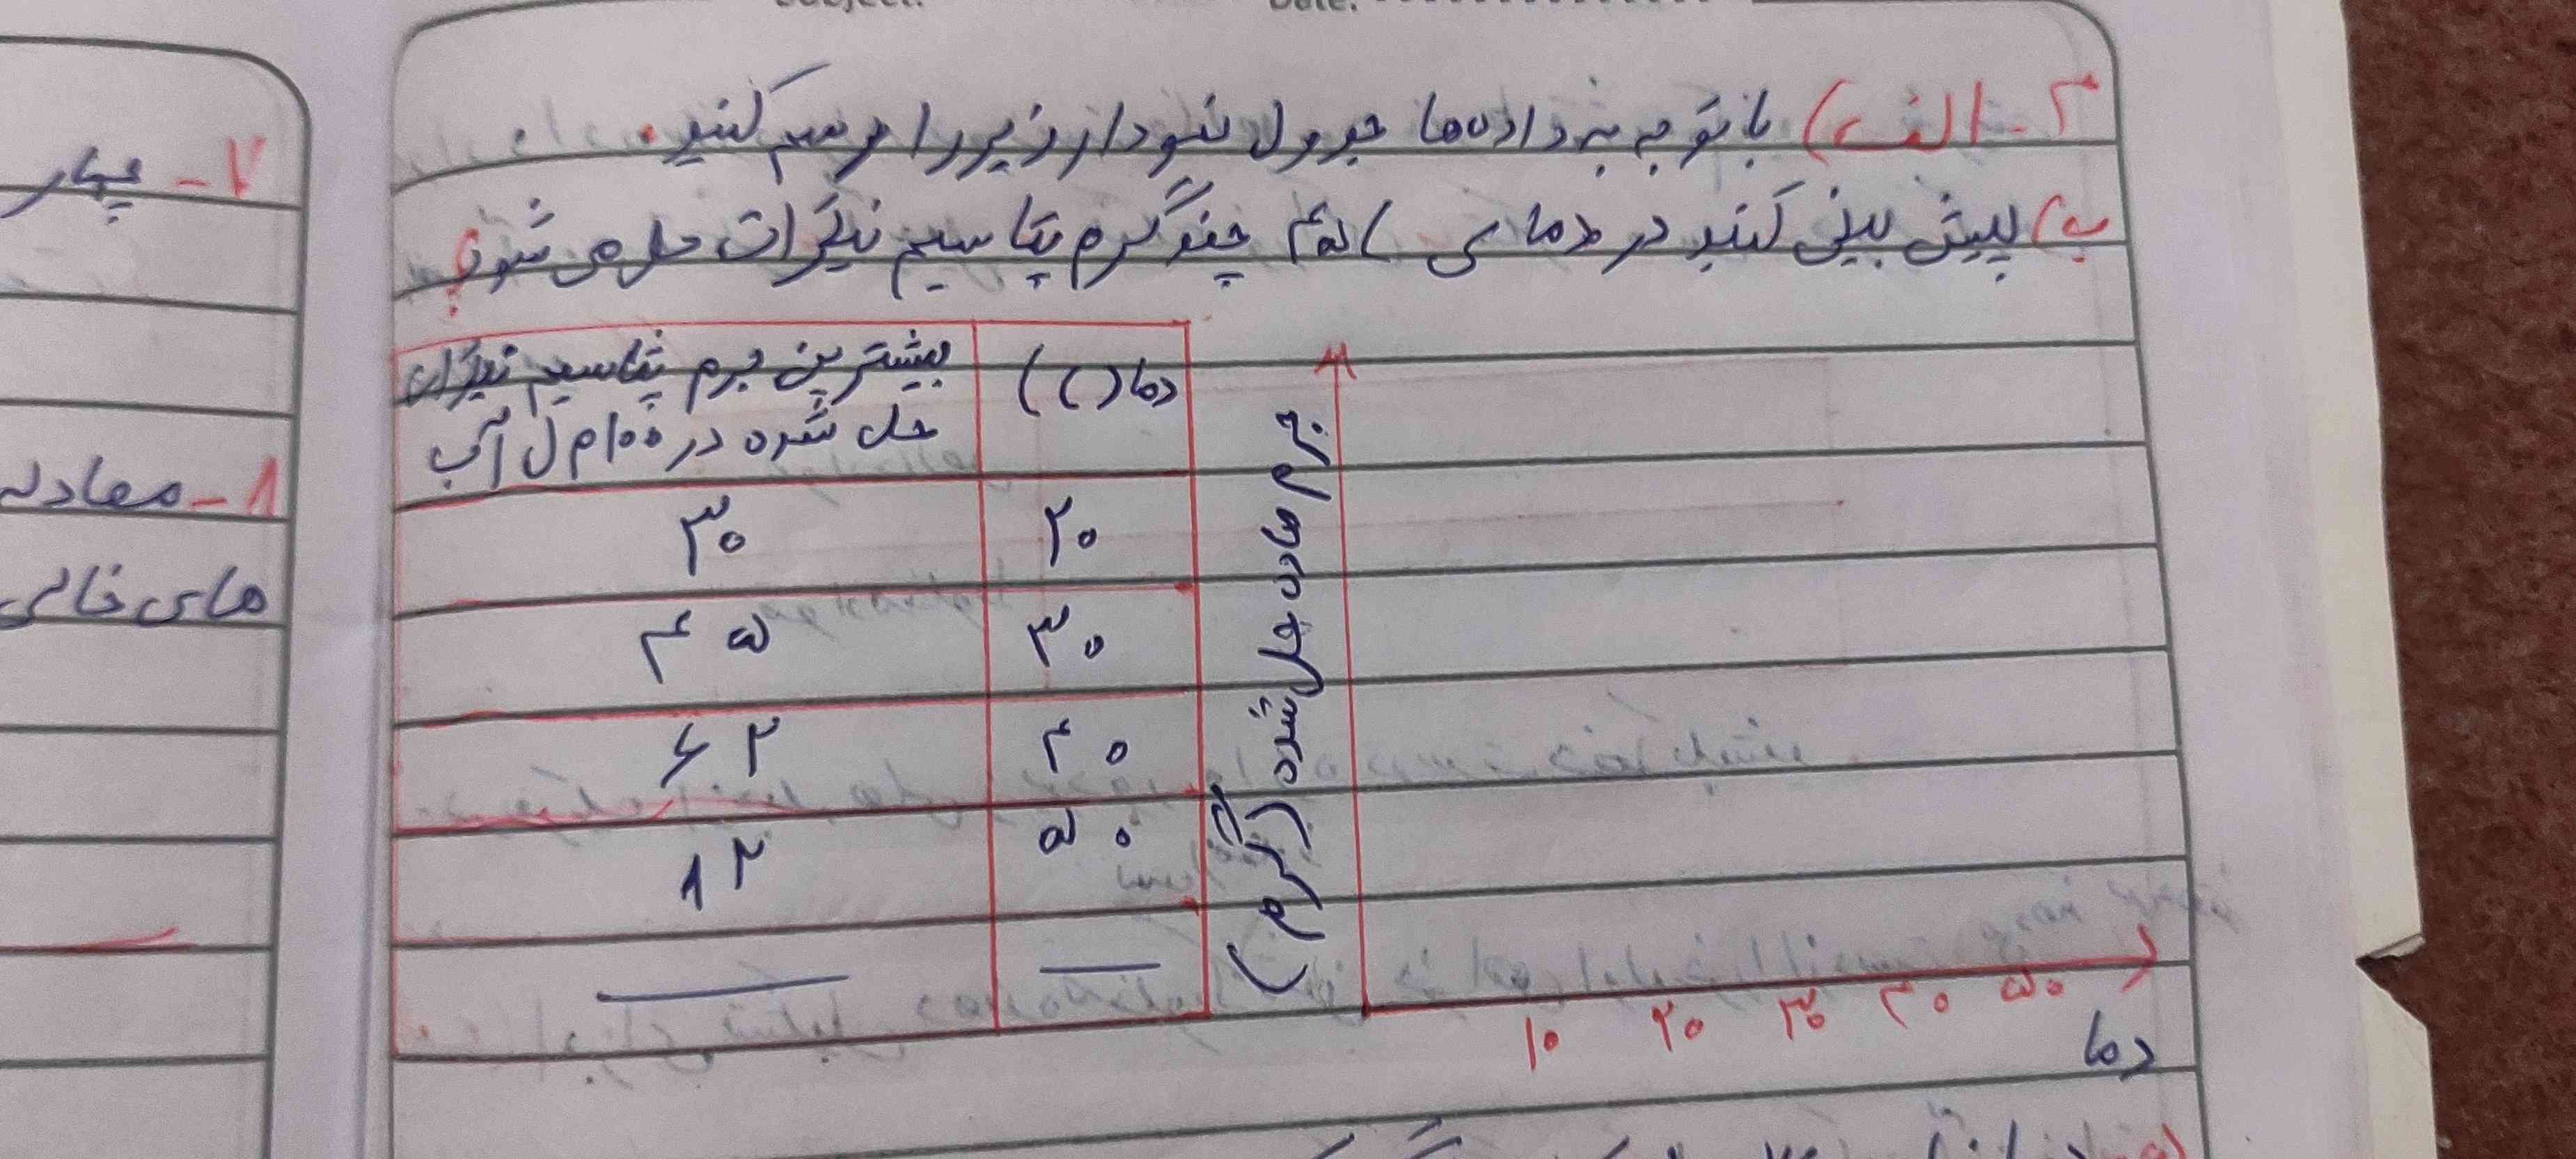 Subject:
Date:
۲- الف) با توجه به داده‌ها جدول نمودار زیر را مرسم کنید.
ب) پیش بینی کنید در دمای ۴۵ چند گرم پتاسیم نیترات حل می شود؟
دما(C) بیشترین جرم پتاسیم نیترات
حل شده در ۱۰۰م ل آب
۲۰ ۳۰
۳۰ ۴۵
۴۰ ۶۲
۵۰ ۸۲
جرم ماده حل شده (گرم)
۱۰ ۲۰ ۳۰ ۴۰ ۵۰
دما
۷- چهار
۸- معادله
های خالی